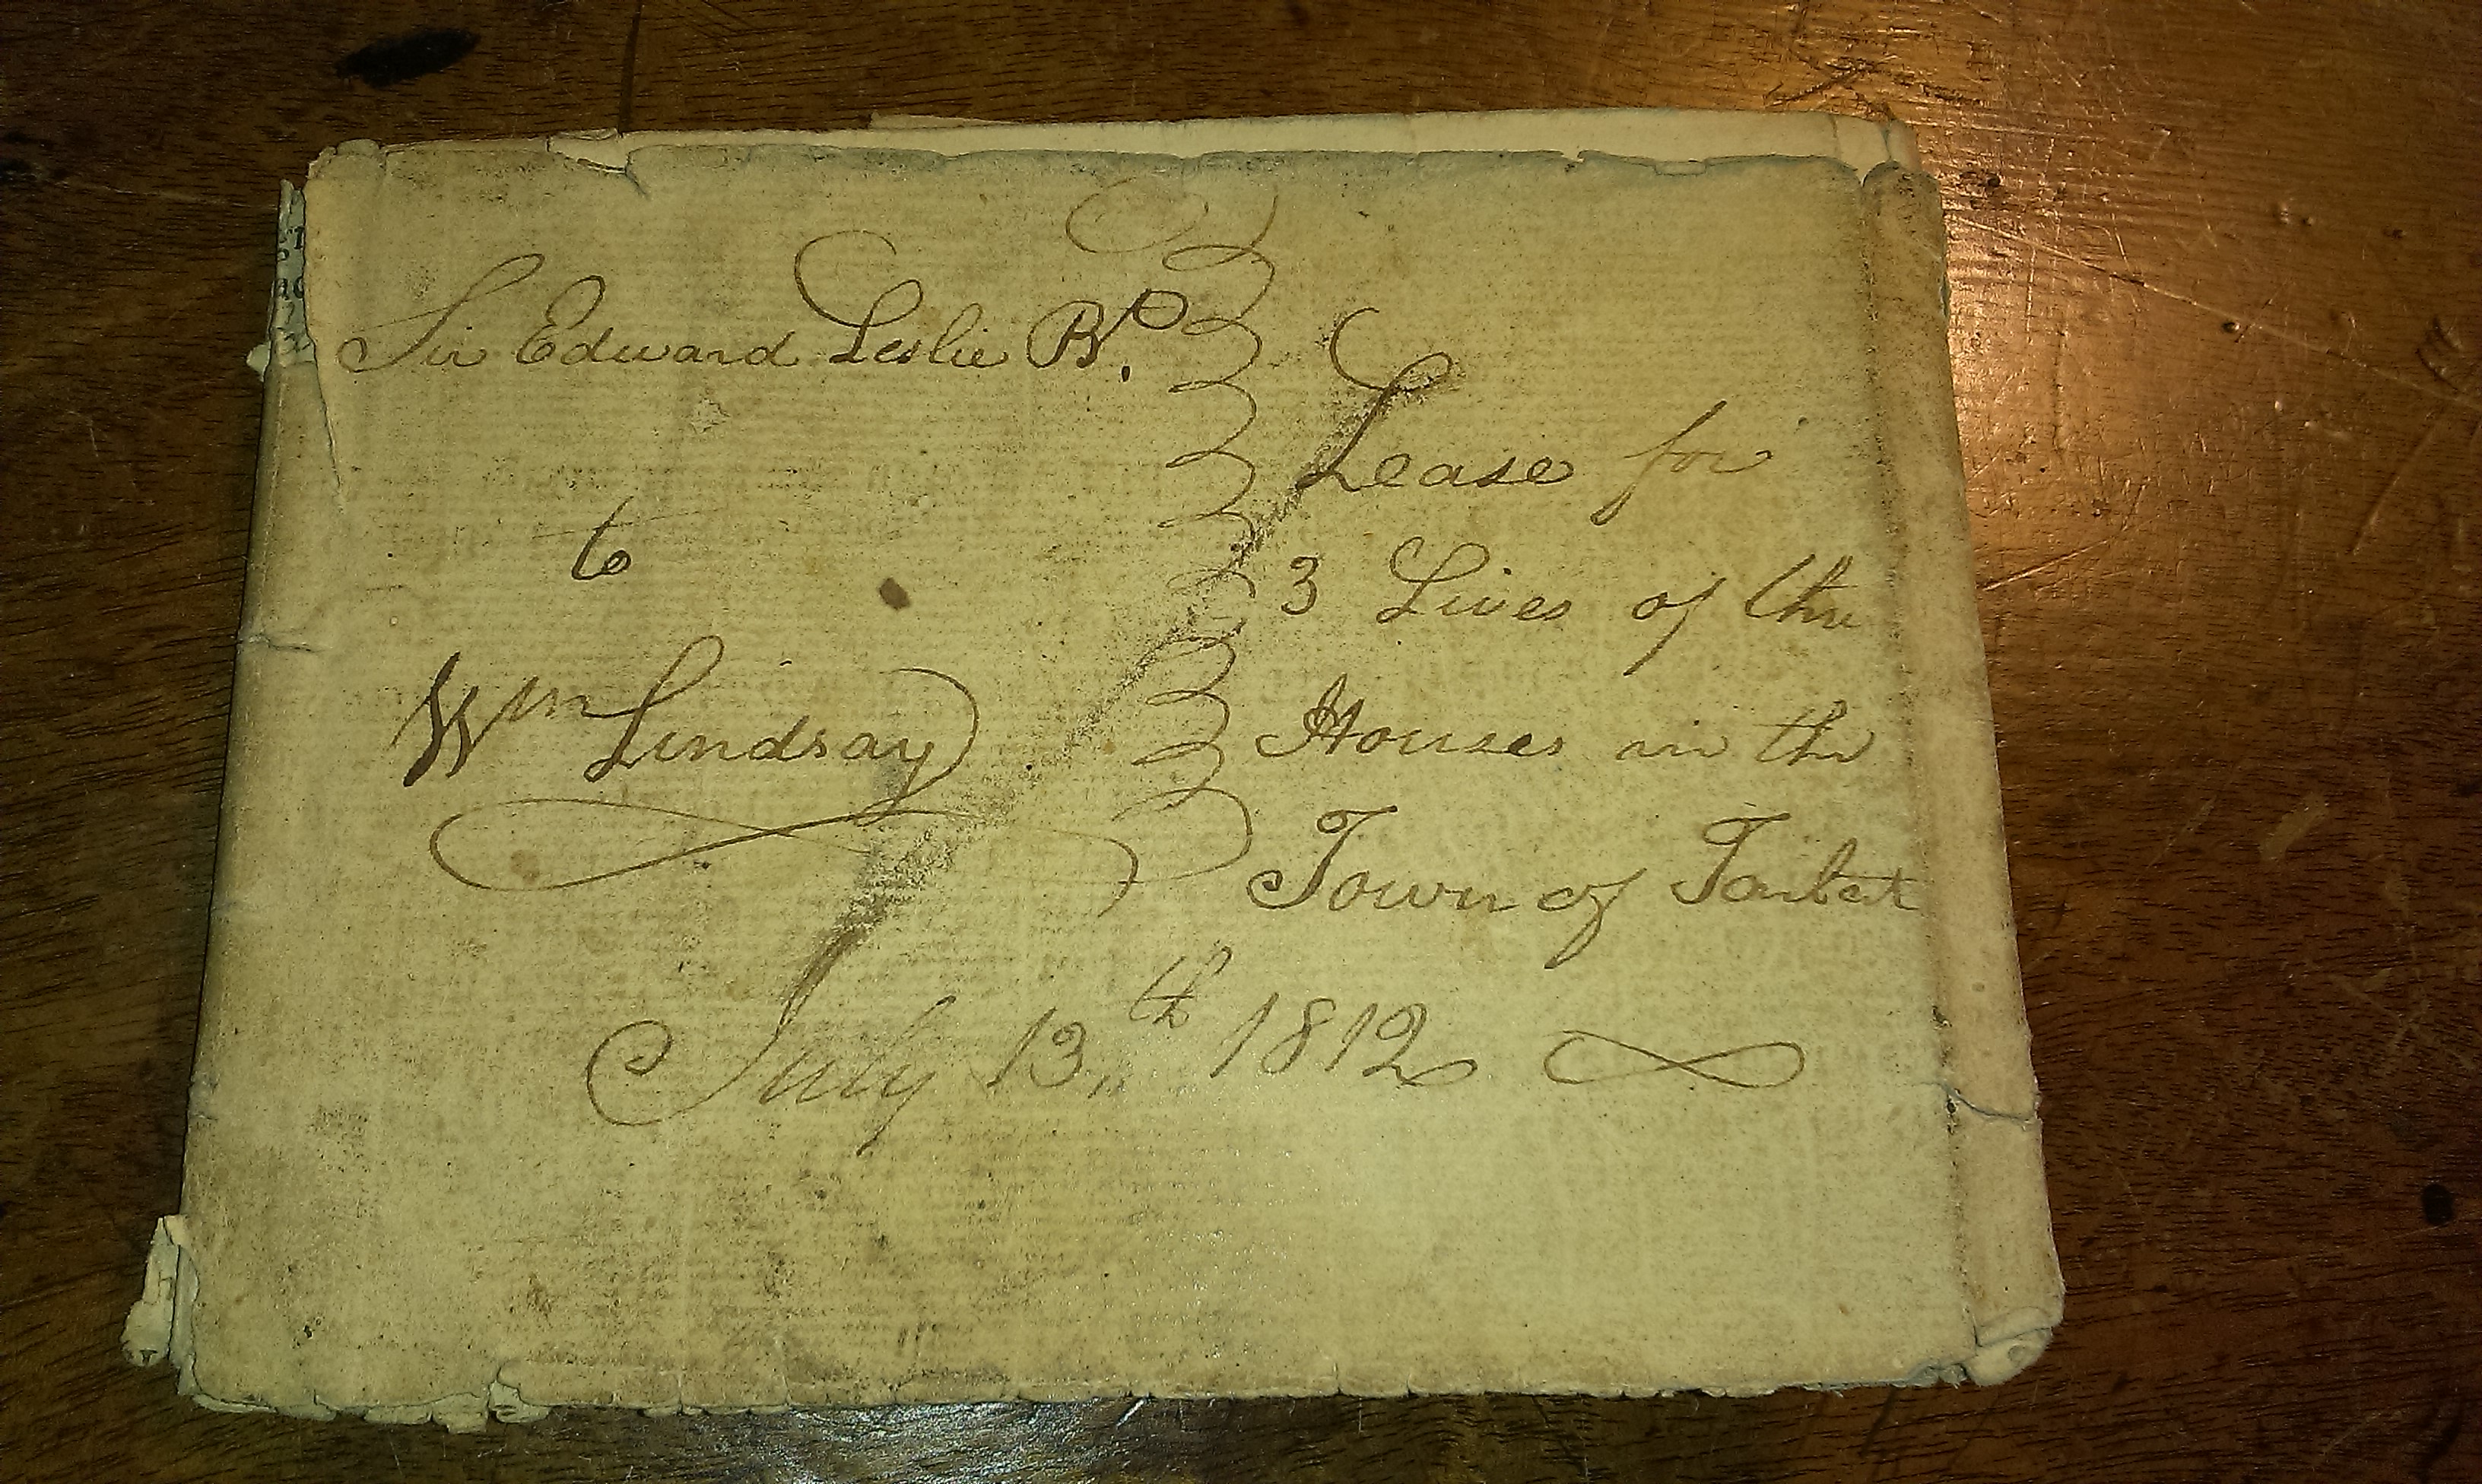 Sir Edward Leslie Bt.
to
Wm Lindsay
Lease for
3 Lives of the
Houses in the
Town of Tarbert
July 13th 1812